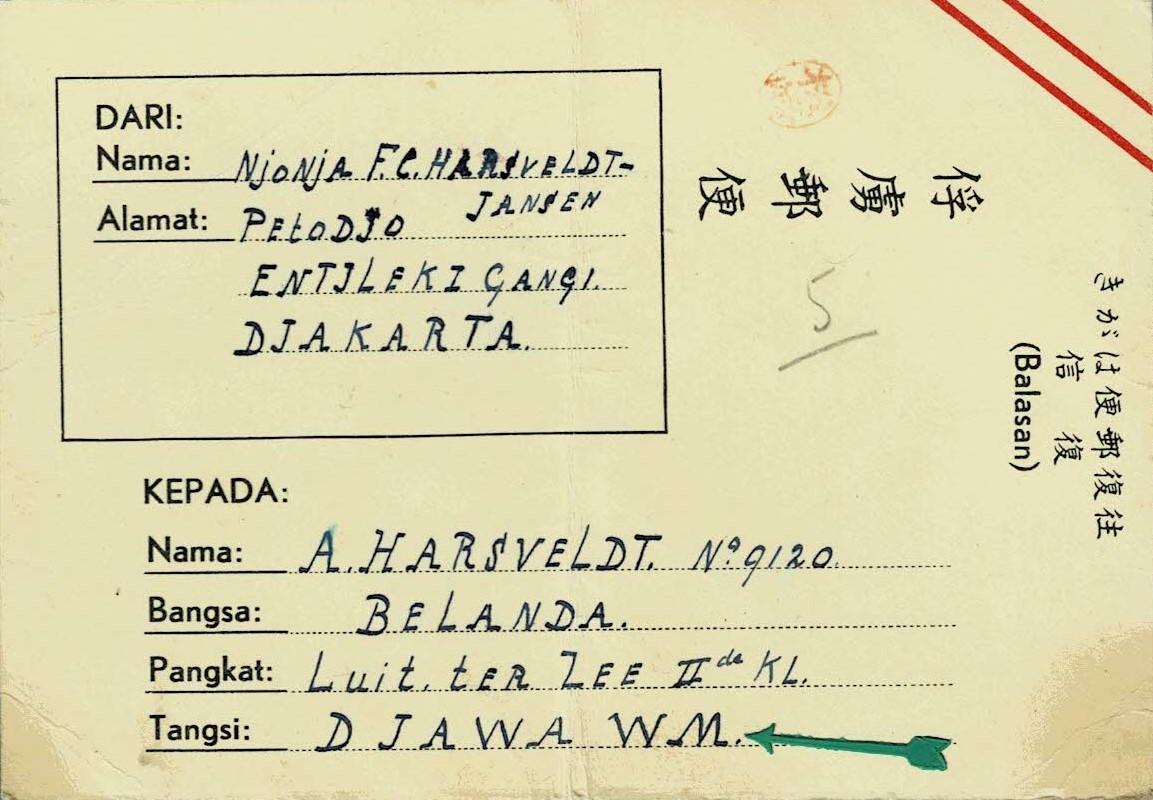 DARI:
Nama: NJONJA F.C. HARSVELDT-
JANSEN
Alamat: PETODJO
ENTJLEKI GANG I.
DJAKARTA.
俘虜郵便
往復郵便はがき
復信
(Balasan)
5
KEPADA:
Nama: A. HARSVELDT. Nº 9120.
Bangsa: BELANDA.
Pangkat: Luit. tER ZEE IIde KL.
Tangsi: DJAWA WM.